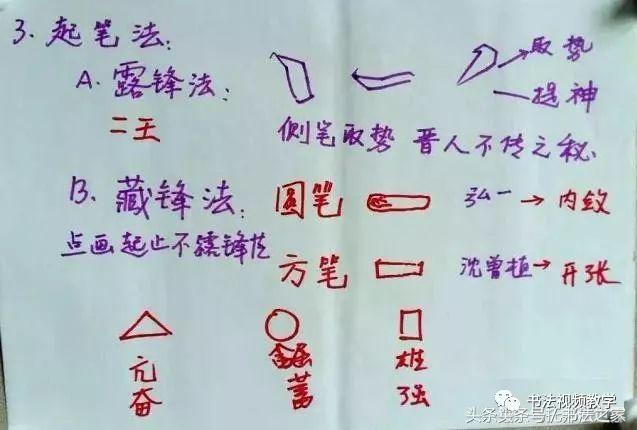 3. 起笔法：
A. 露锋法：
取势
提神
二王
侧笔取势 晋人不传之秘.
B. 藏锋法： 圆笔 弘一→内敛
点画起止不露锋芒
方笔 沈曾植→开张
亢奋
含蓄
雄强
书法视频教学
头条号
书法之家